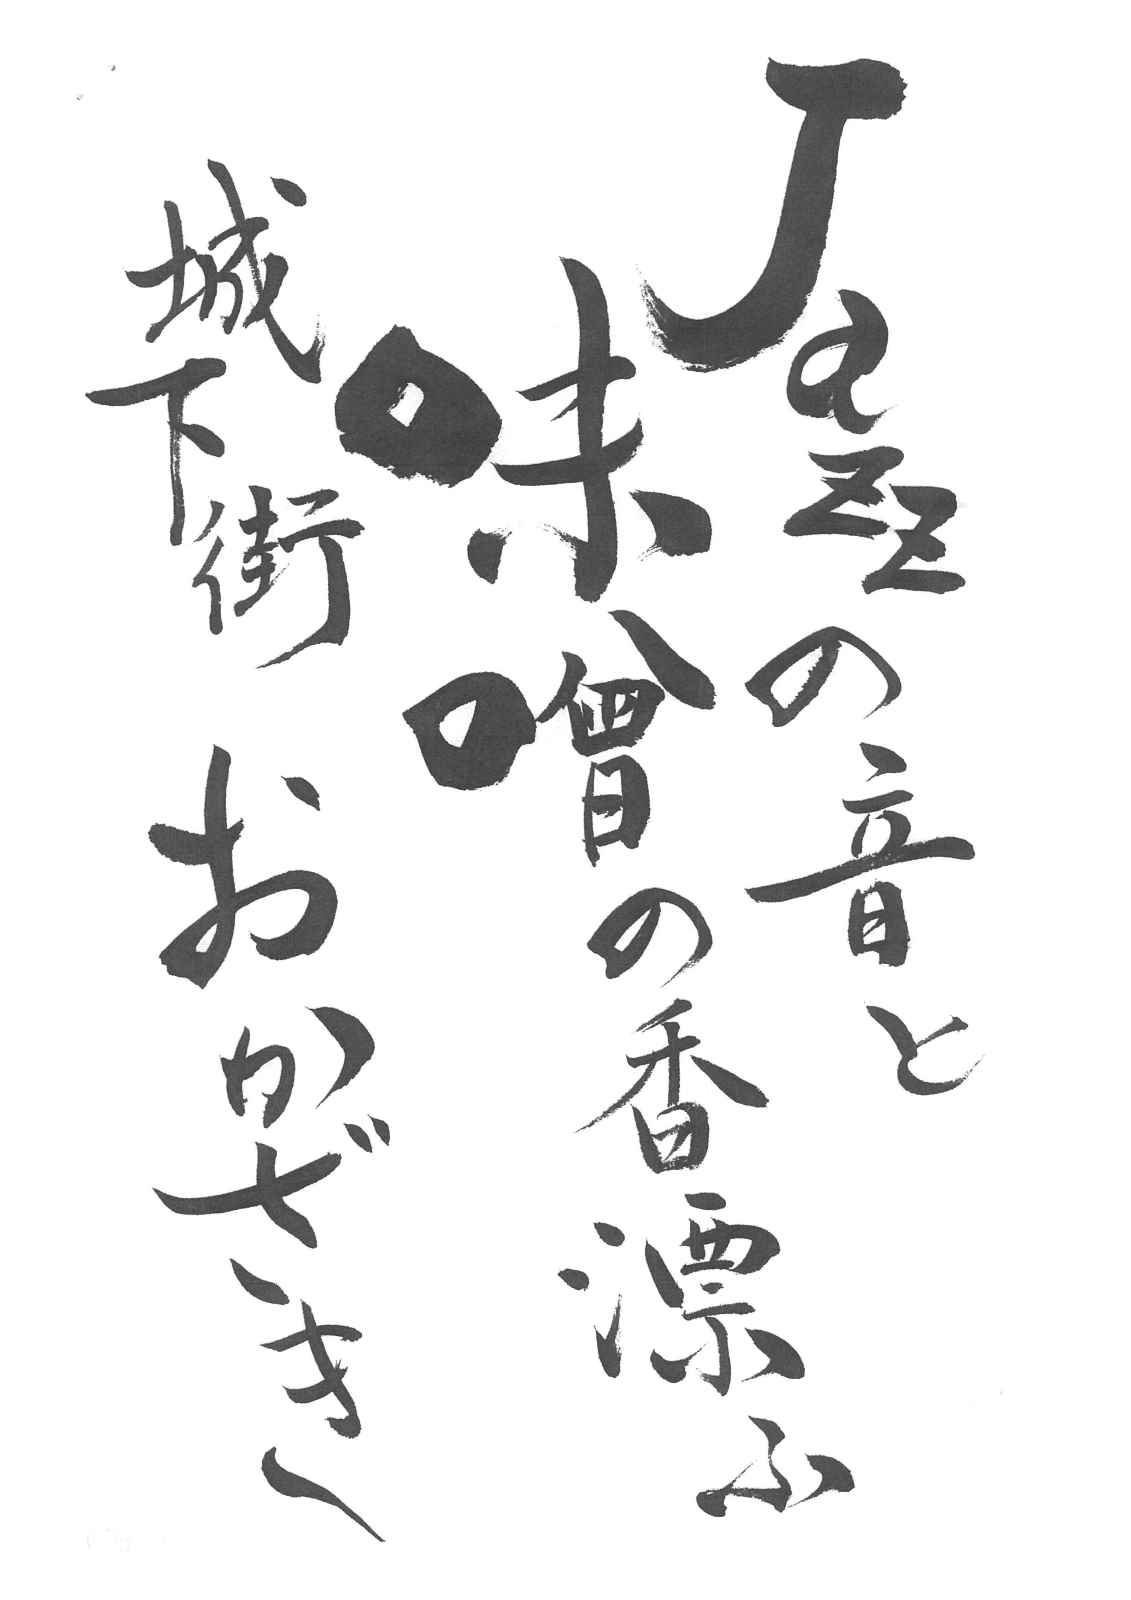 Jazzの音と
味噌の香漂ふ
城下街 おかざき